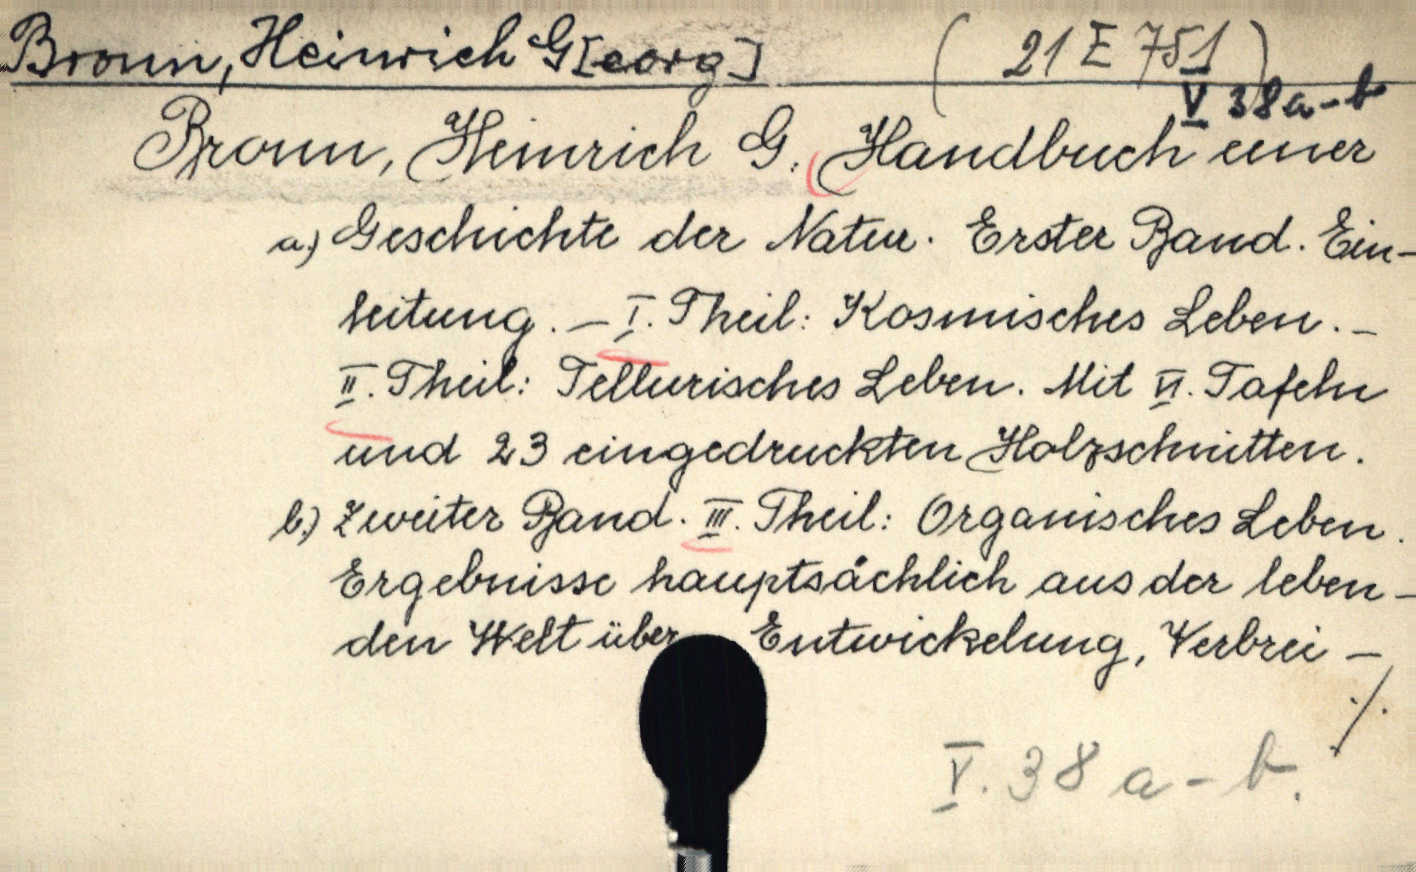 Bronn, Heinrich G[eorg] (21 E 751)
V 38a-b
Bronn, Heinrich G. Handbuch einer
a.) Geschichte der Natur. Erster Band. Ein-
leitung. – I. Theil: Kosmisches Leben. –
II. Theil: Tellurisches Leben. Mit VI. Tafeln
und 23 eingedruckten Holzschnitten.
b.) Zweiter Band. III. Theil: Organisches Leben.
Ergebnisse hauptsächlich aus der leben-
den Welt über Entwickelung, Verbrei-
./.
V. 38 a-b.